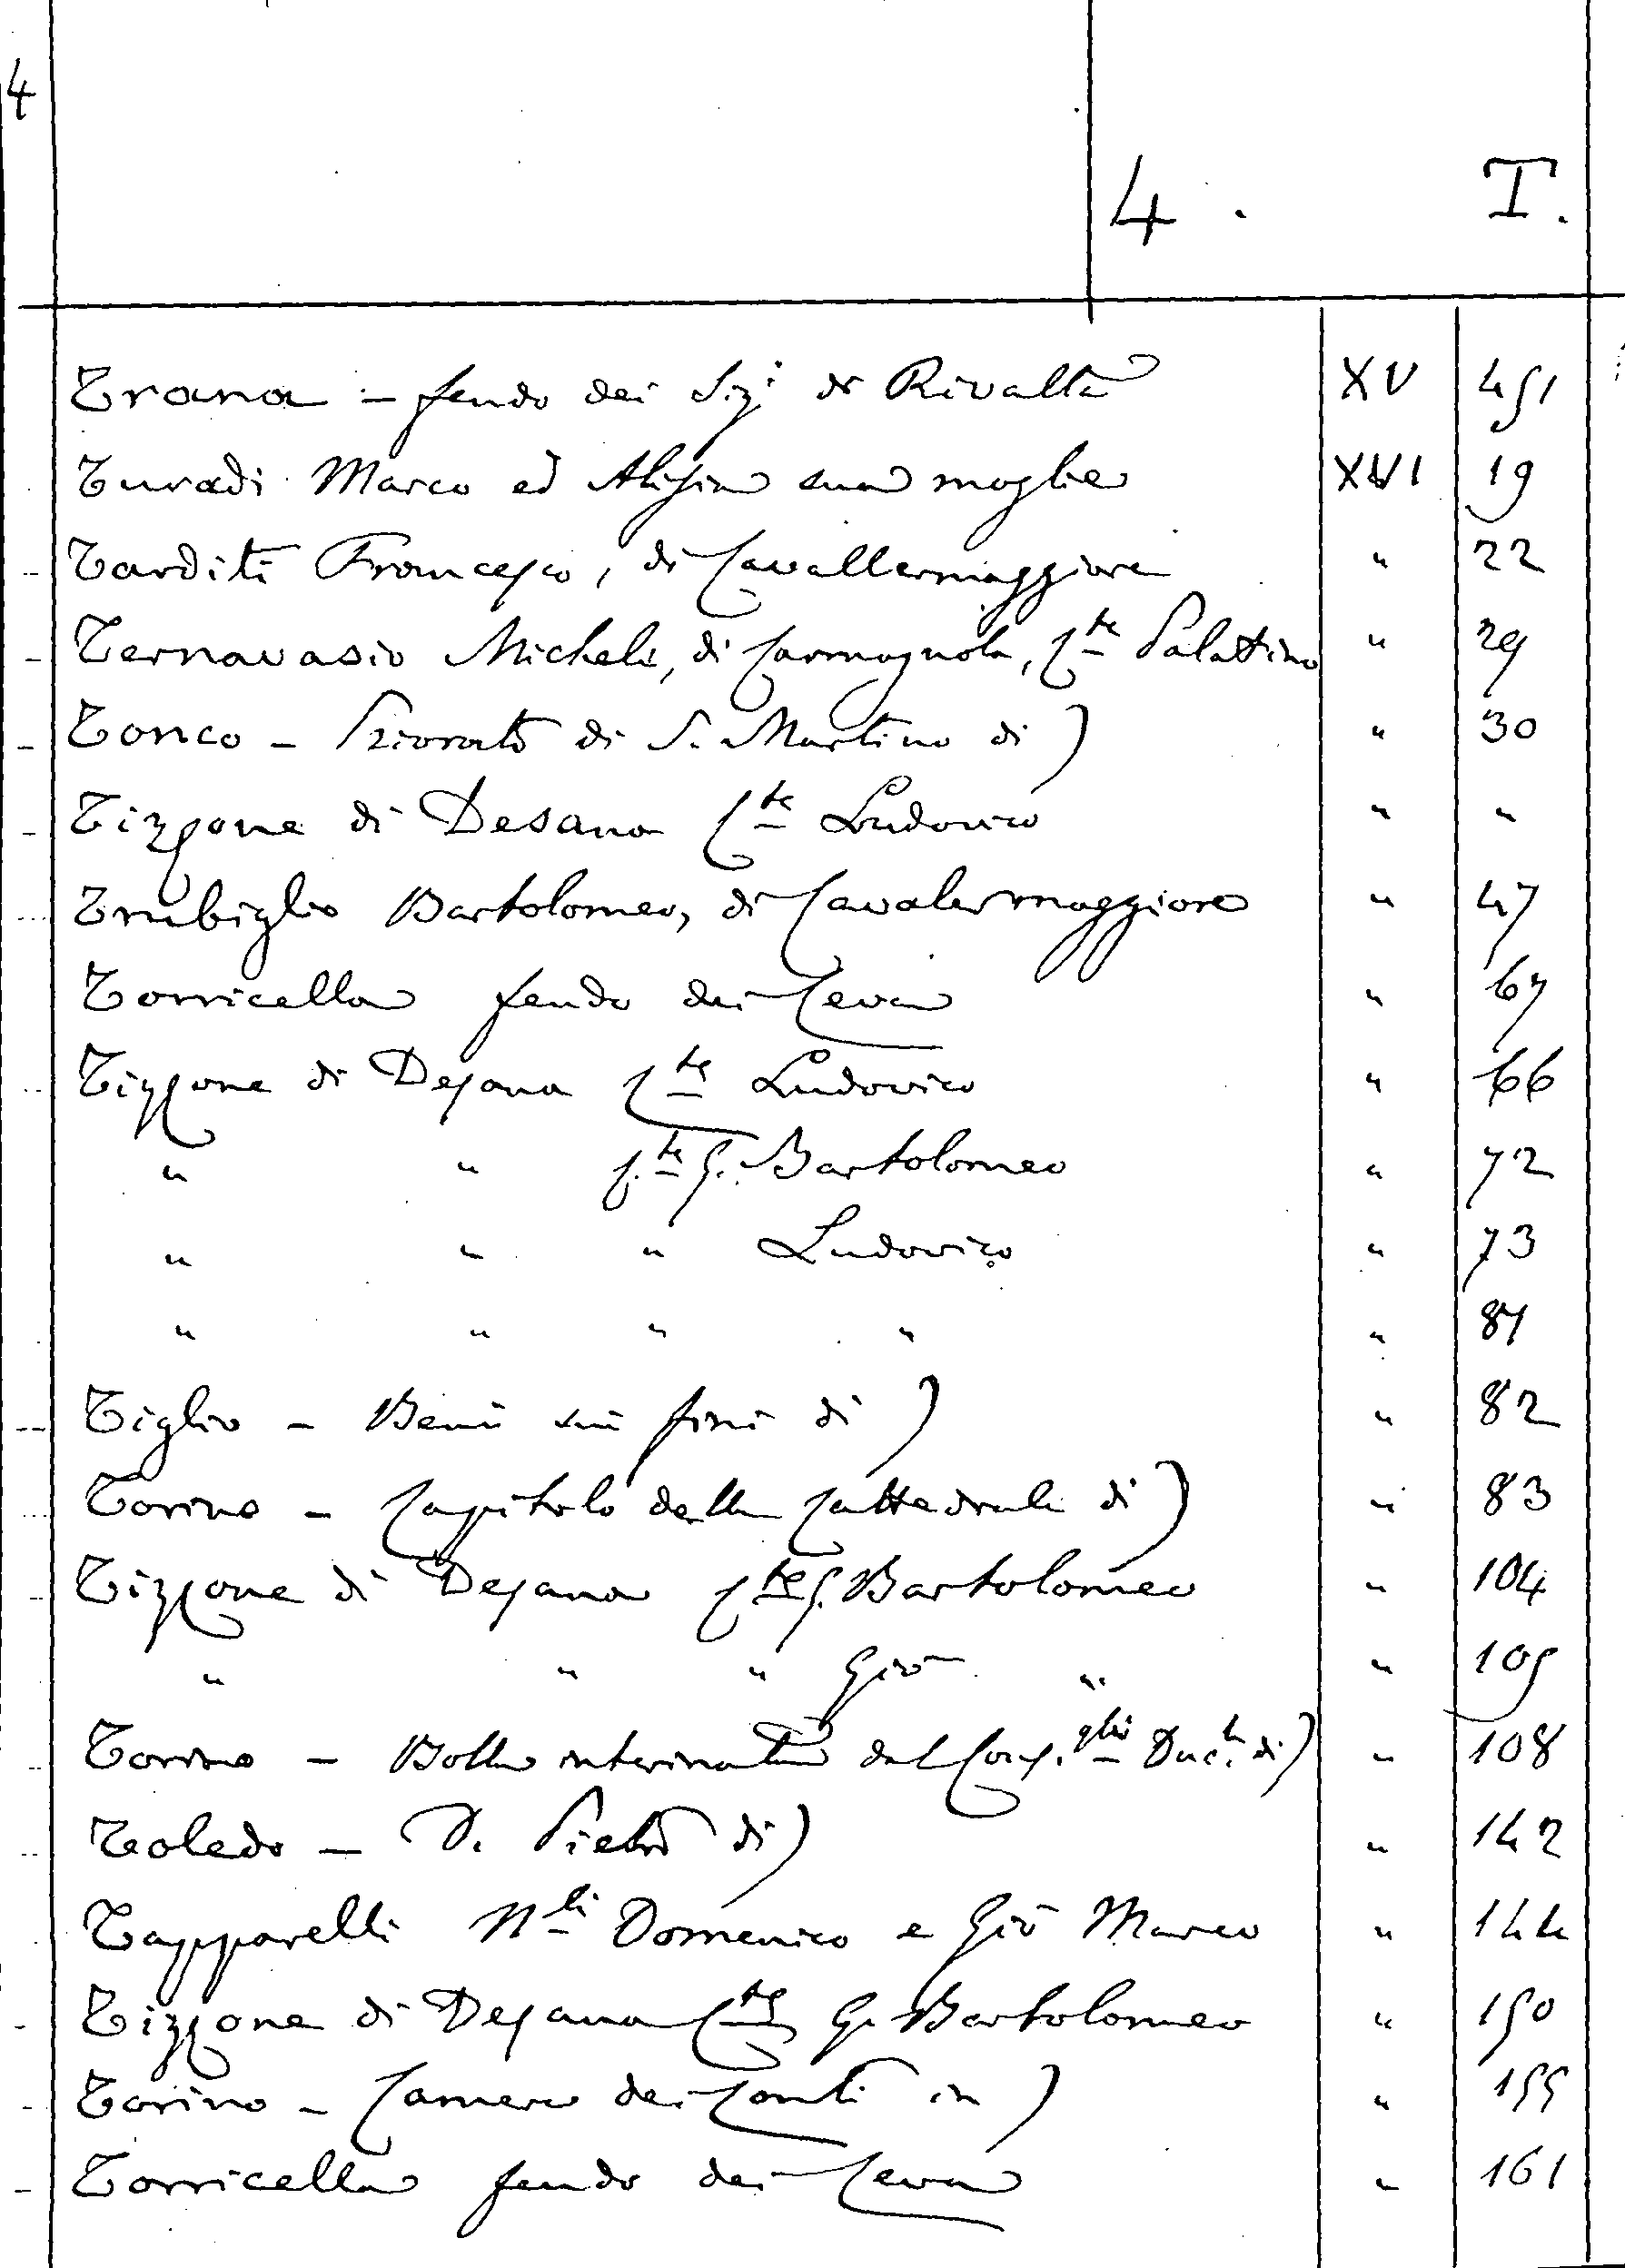 4
4. T.
Trana - feudo dei Sigi di Rivalta XV 451
Turadi Marco ed Alisia sua moglie XVI 19
Tarditi Francesco, di Cavallermaggiore " 22
Ternavasio Michele, di Carmagnola, Cte Palattino " 29
Tonco - Priorato di S. Martino di) " 30
Tizzone di Desana Cte Ludovico " "
Trubiglio Bartolomeo, di Cavalermaggiore " 47
Torricella feudo dei Ceva " 67
Tizzone di Desana Cte Ludovico " 66
" " C.te G. Bartolomeo " 72
" " " Ludovico " 73
" " " " "
Tiglio - Beni sui fini di) " 82
Torino - Capitolo della Cattedrale di) " 83
Tizzone di Desana Cte G. Bartolomeo " 104
" " " Gio " " 105
Torino - Bolla interinata dal Cons.glio Duc.le di) " 108
Toledo - D. Pietro di) " 142
Tapparelli Nli Domenico e Gio Marco " 144
Tizzone di Desana Cte G. Bartolomeo " 150
Torino - Camera dei Conti in) " 155
Torricella feudo dei Ceva " 161